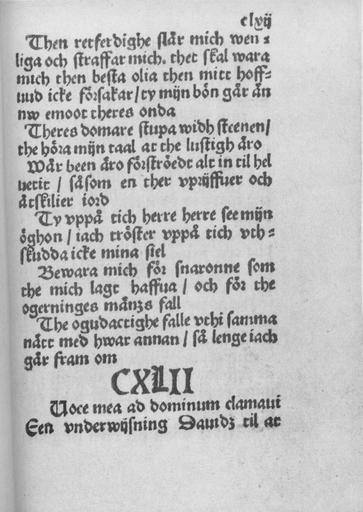 clxij
Then retferdighe slår mich wen-
liga och straffar mich. thet skal wara
mich then besta olia then mitt hoff-
uud icke försakar/ ty mijn bön går än
nw emoot theres onda
Theres domare stupa widh steenen/
the höra mijn taal at the lustigh äro
Wår been äro förströedt alt in til hel
uetit / såsom en ther vprijffuer och
åtskilier iord
Ty vppå tich herre herre see mijn
öghon / iach tröster vppå tich vth-
skudda icke mina siel
Bewara mich för snaronne som
the mich lagt haffua / och för the
ogerninges mänzs fall
The ogudactighe falle vthi samma
nått med hwar annan / så lenge iach
går fram om
CXLII
Uoce mea ad dominum clamaui
Een vnderwijsning Dauidz til at